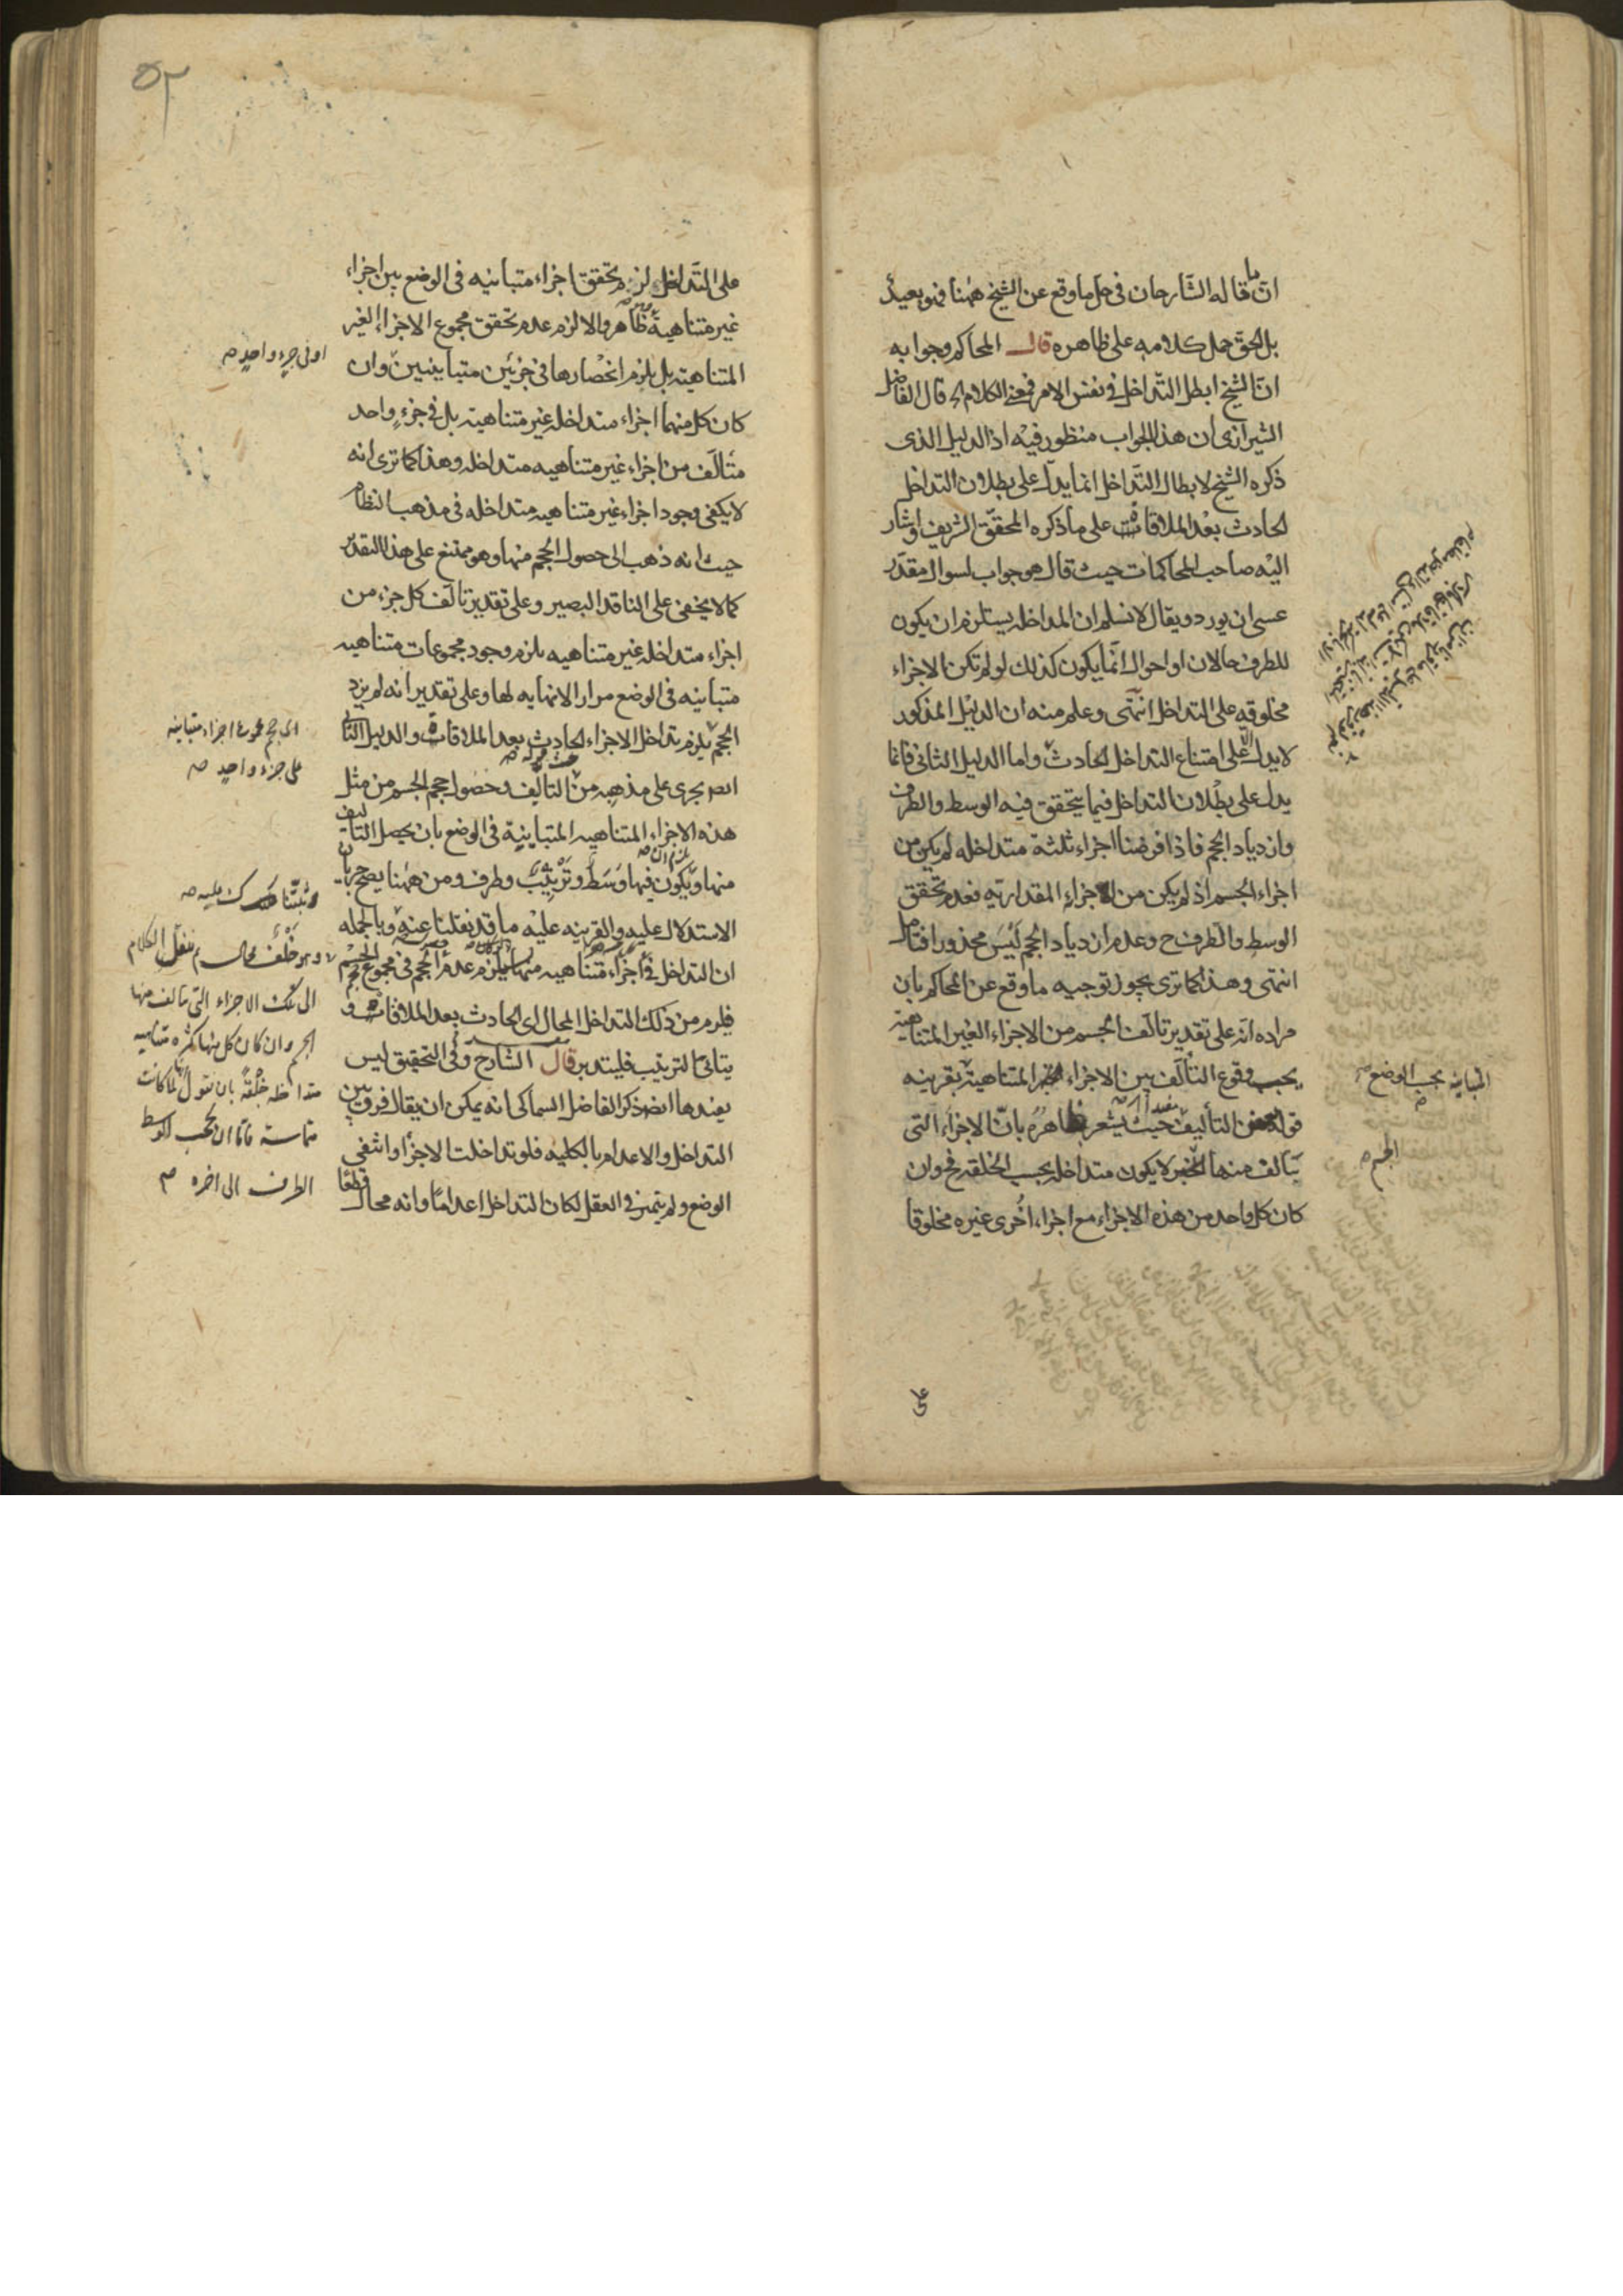 ان ما قاله الشارحان فى حل ما وقع عن الشيخ ههنا فهو بعيد
بل الحق حمل كلامه على ظاهره قال المحاكم وجوابه
ان الشيخ ابطل التداخل فى نفس الامر الكلام قال الفاضل
الشيرازى ان هذا الجواب منظور فيه اذ الدليل الذى
ذكره الشيخ لابطال التداخل انما يدل على بطلان التداخل
الحادث بعد الملاقات على ما ذكره المحقق الشريف واشار
اليه صاحب المحاكمات حيث قال هو جواب لسوال مقدر
عسى ان يورد ويقال لا نسلم ان المداخله يستلزم ان يكون
للطرف حالان او احوال انما يكون كذلك لو لم تكن الاجزاء
مخلوقه على التداخل انتهى وعلم منه ان الدليل المذكور
لا يدل على امتناع التداخل الحادث واما الدليل الثانى فانما
يدل على بطلان التداخل فيما يتحقق فيه الوسط والطرف
وازدياد الحجم فاذا فرضنا اجزاء ثلثة متداخله لم يكن من
اجزاء الجسم اذ لم يكن من الاجزاء المقداريه فعدم تحقق
الوسط والطرف ح وعدم ازدياد الحجم ليس محذورا فتامل
انتهى وهذا كما ترى يجوز توجيه ما وقع عن المحاكم بان
مراده انه على تقدير تالف الجسم من الاجزاء الغير المتناهية
يجب وقوع التألف بين الاجزاء المتناهية بقرينه
قوله التأليف حيث يشعر ظاهره بان الاجزاء التى
يتالف منها لا يكون متداخله بحسب الخلقه فح وان
كان كل واحد من هذه الاجزاء مع اجزاء اخرى غيره مخلوقا
المتباينه بحسب الوضع
الجسم
على
٥٢
على التداخل لزم تحقق اجزاء متباينه فى الوضع بين اجزاء
غير متناهية ظاهر والا لزم عدم تحقق مجموع الاجزاء الغير
المتناهيه بل يلزم انحصارها فى جزئين متباينين وان
كان كل منهما اجزاء متداخله غير متناهيه بل فى جزء واحد
متألف من اجزاء غير متناهيه متداخله وهذا كما ترى انه
لا يكفى وجود اجزاء غير متناهيه متداخله فى مذهب النظام
حيث انه ذهب الى حصول الحجم منها وهو ممتنع على هذا التقدير
كما لا يخفى على الناقد البصير وعلى تقدير تالف كل جزء من
اجزاء متداخله غير متناهيه يلزم وجود مجموعات متناهيه
متباينه فى الوضع مرارا لا نهايه لها وعلى تقدير انه لم يزد
الحجم يلزم تداخل الاجزاء الحادث بعد الملاقات والدليل الثانى
يجرى على مذهبه من التاليف وحصول حجم الجسم من مثل
هذه الاجزاء المتناهيه المتباينة فى الوضع بان يحصل التاليف
منها ويكون فيها وسط وترتيب وطرف ومن ههنا يصح جريان
الاستدلال عليه والقرينه عليه ما قد نقلنا عنه وبالجمله
ان التداخل فى اجزاء متناهيه منها يلزم عدم الحجم فى مجموع الجسم
فلزم من ذلك التداخل المحال اى الحادث بعد الملاقات و
يتاتى الترتيب فليتدبر قال الشارح وفى التحقيق ليس
بعندها ذكر الفاضل السماكى انه يمكن ان يقال فرق بين
التداخل والاعدام بالكليه فلو تداخلت الاجزاء وانتفى
الوضع ولم يتميز فى العقل لكان التداخل اعداما وانه محال قطعا
او فى جزء واحد
مجموع اجزاء متباينه
على جزء واحد
وهو خلف محال ننقل الكلام
الى تلك الاجزاء التى تالف منها
الجسم وان كان كل منها كثره متناهيه
متداخله خلقة بان نقول لما كانت
متماسة فاما ان يحجب الوسط
الطرف الى اخره